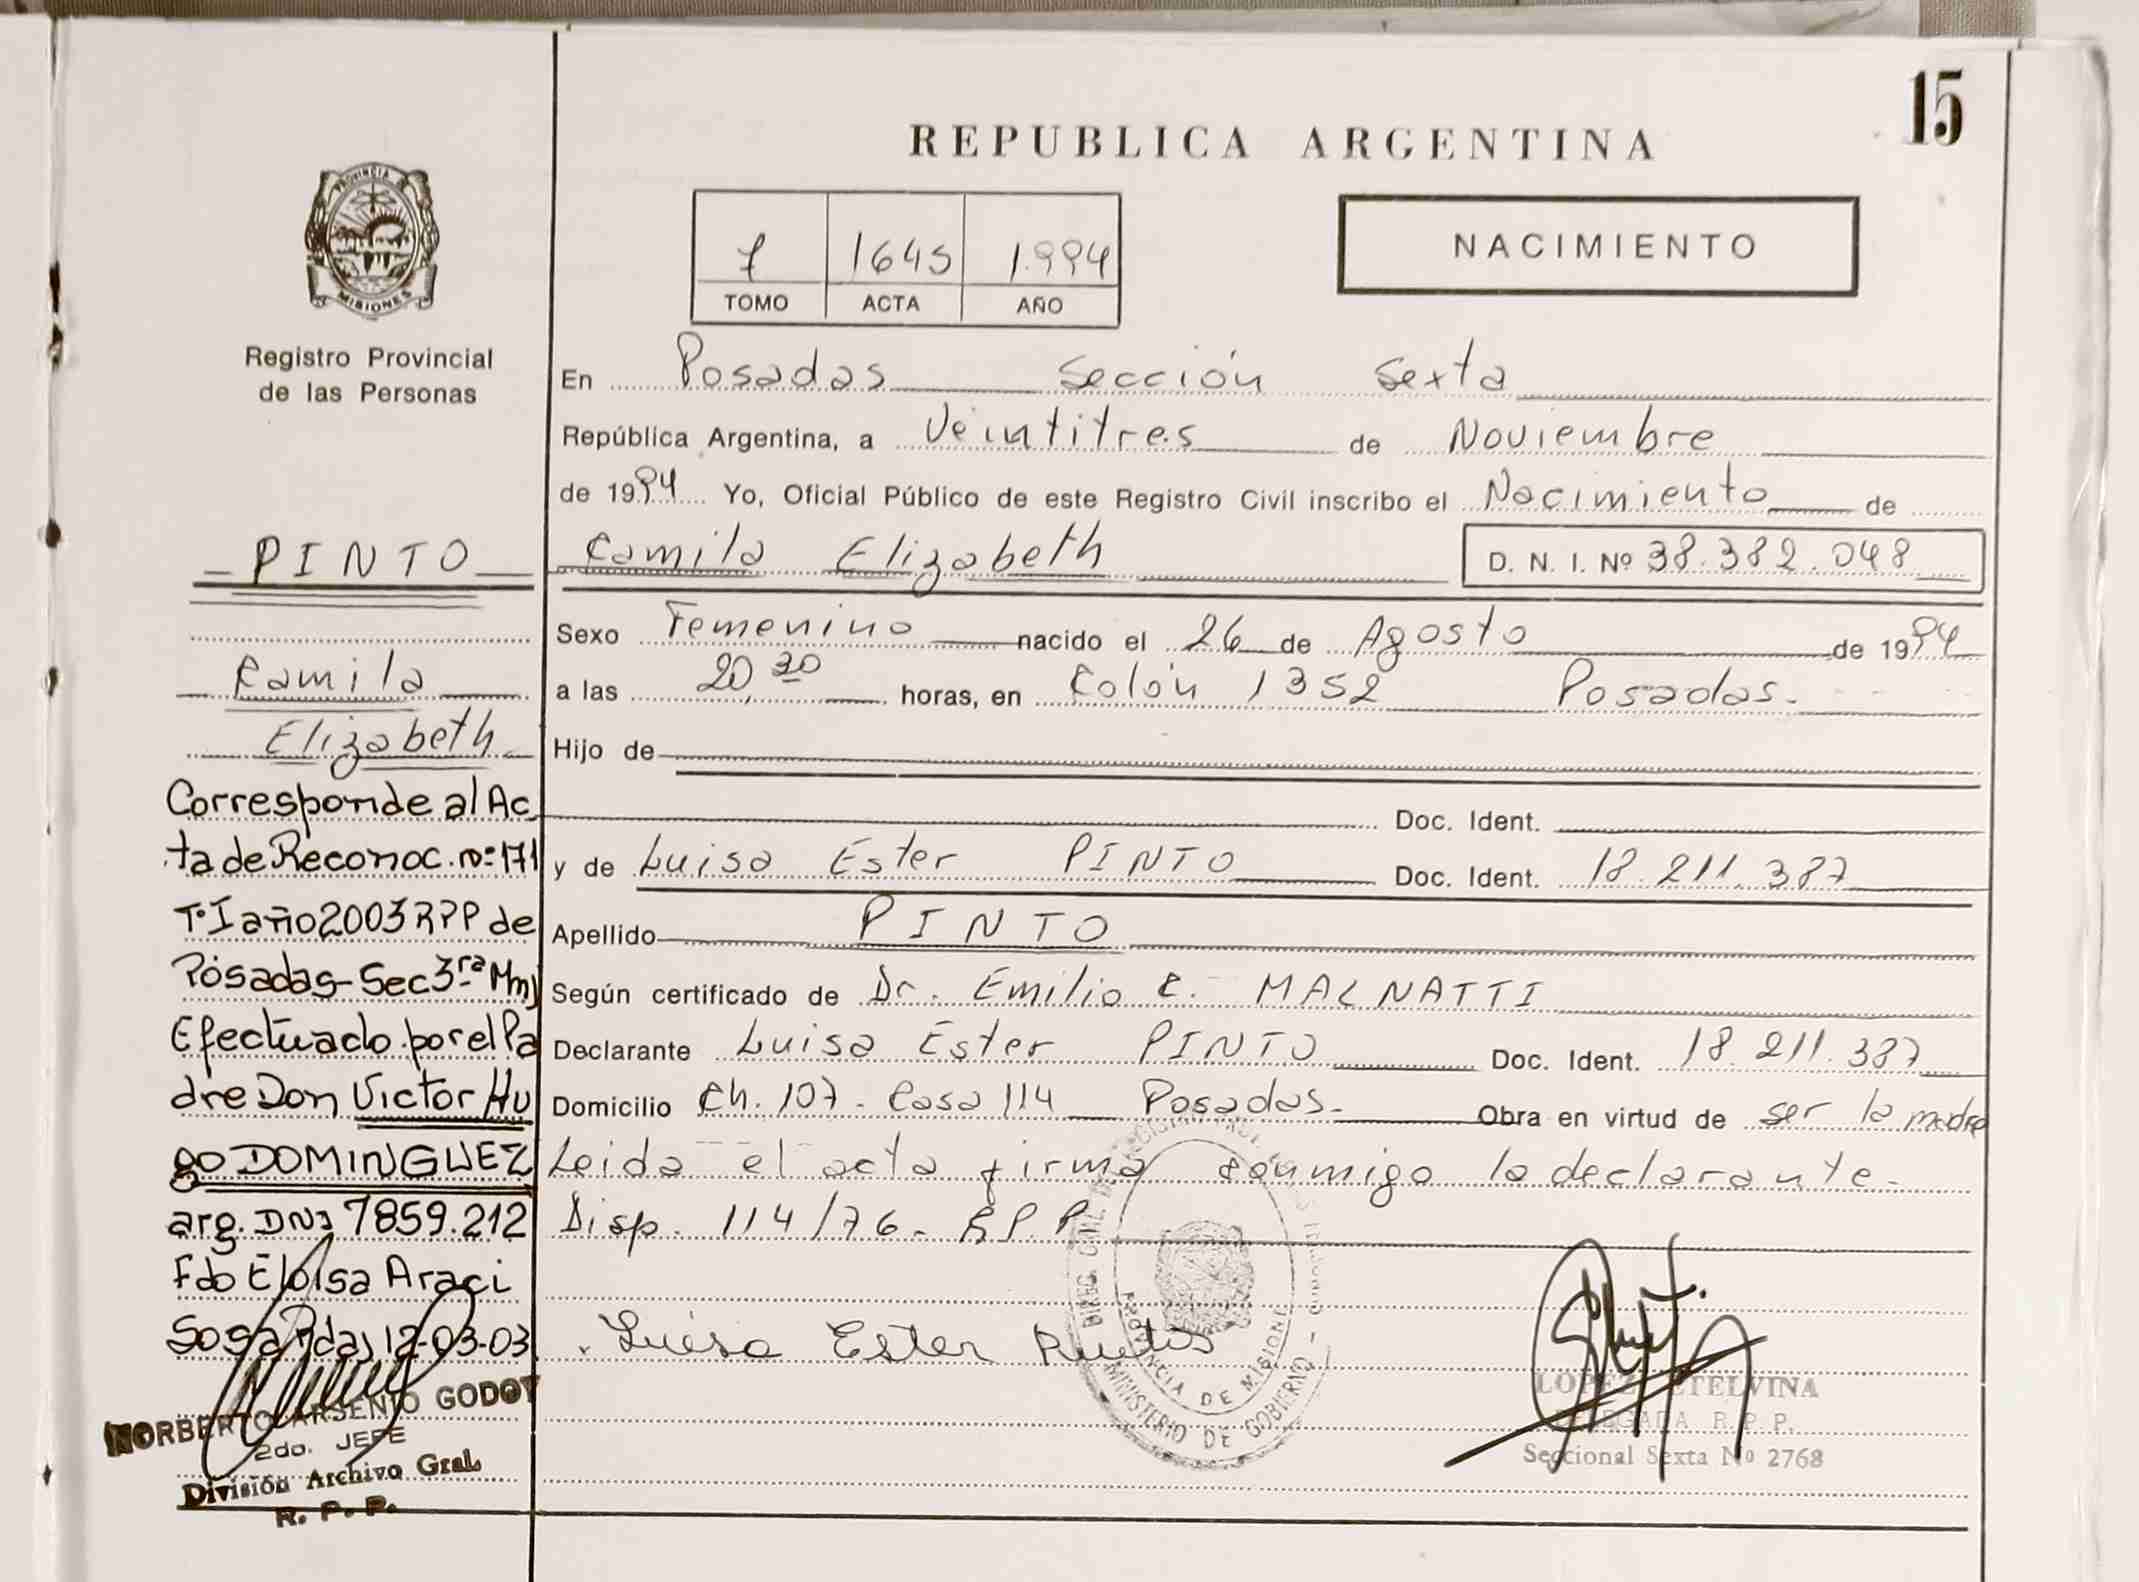 15
REPUBLICA ARGENTINA
PROVINCIA DE
MISIONES
Registro Provincial
de las Personas
1645 1.994
TOMO ACTA AÑO
NACIMIENTO
En Posadas Sección Sexta
República Argentina, a Veintitres de Noviembre
de 1994 Yo, Oficial Público de este Registro Civil inscribo el Nacimiento de
Camila Elizabeth D. N. I. Nº 38.382.048
Sexo Femenino nacido el 26 de Agosto de 1994
a las 20,30 horas, en Colón 1352 Posadas.
Hijo de
Doc. Ident.
y de Luisa Ester PINTO Doc. Ident. 18.211.387
Apellido PINTO
Según certificado de Dr. Emilio E. MALNATTI
Declarante Luisa Ester PINTO Doc. Ident. 18.211.387
Domicilio Ch. 107 - Casa 114 Posadas.- Obra en virtud de ser la madre
Leida el acta firma conmigo la declarante.-
Disp. 114/76 - R.P.P
Luisa Ester
PROVINCIA DE MISIONES
MINISTERIO DE GOBIERNO
LOPEZ ETELVINA
DELEGADA R. P. P.
Seccional Sexta Nº 2768
PINTO
Camila
Elizabeth
Corresponde al Ac
ta de Reconoc. nº: 171
Tº I año 2003 RPP de
Posadas - Sec 3ra
Efectuado por el Pa
dre Don Victor Hu
go DOMINGUEZ
arg. DNI 7859.212
Fdo Eloisa Araci
Sosa Pdas 12-03-03
NORBERTO ARSENIO GODOY
2do. JEFE
División Archivo Gral.
R. P. P.